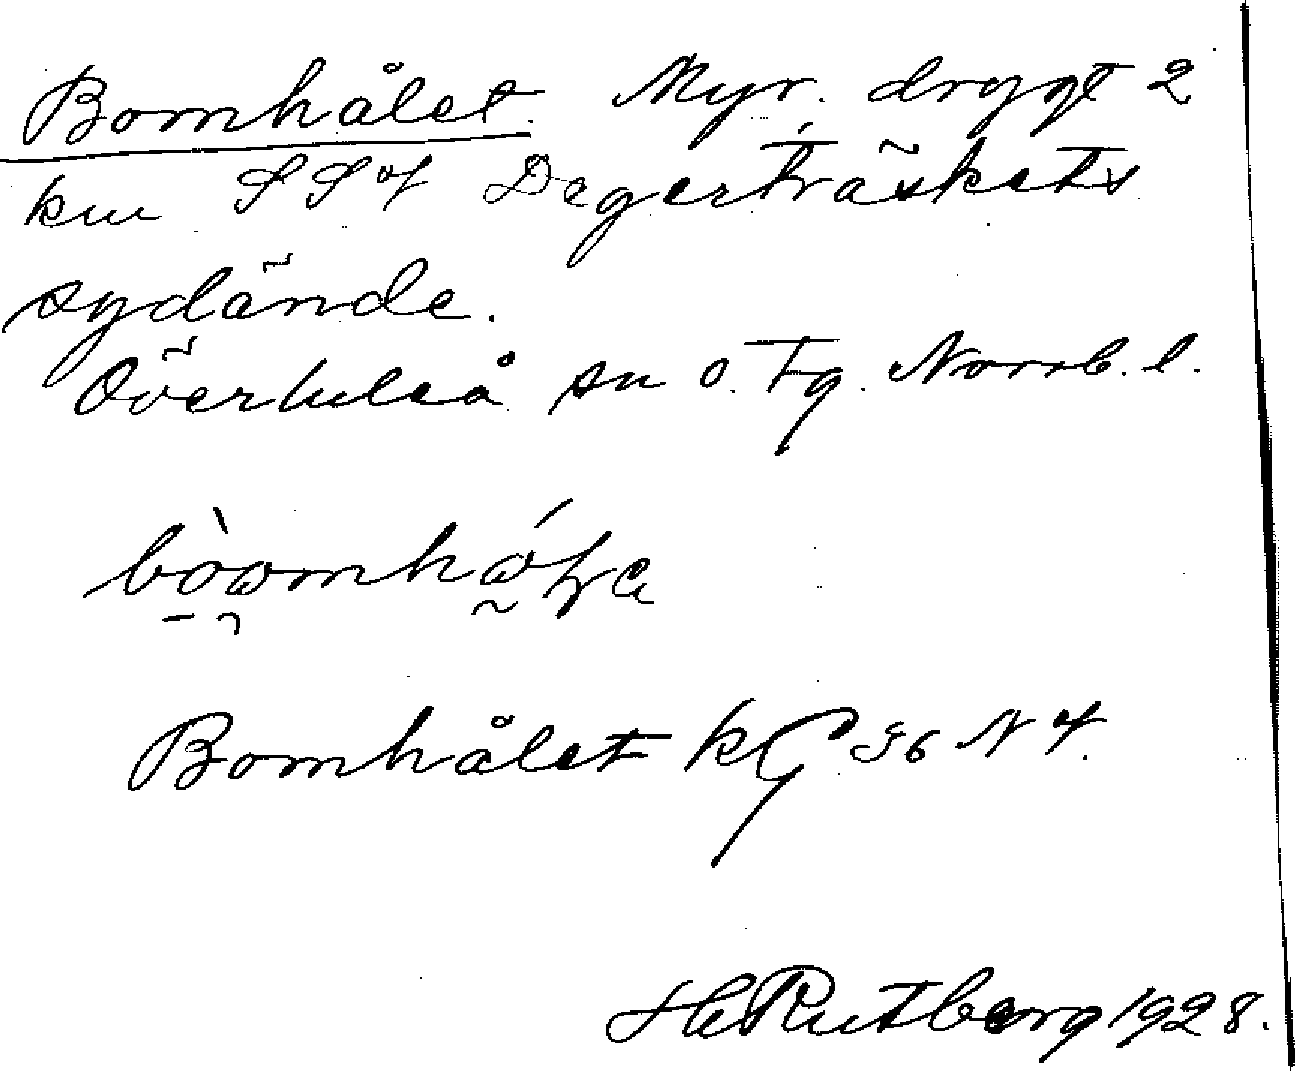 Bomhålet. Myr. drygt 2
km SS of Degerträskets
sydände.
Överluleå sn o. tg. Norrb. l.
Bomhålet kG 36 N 4.
H Rutberg 1928.